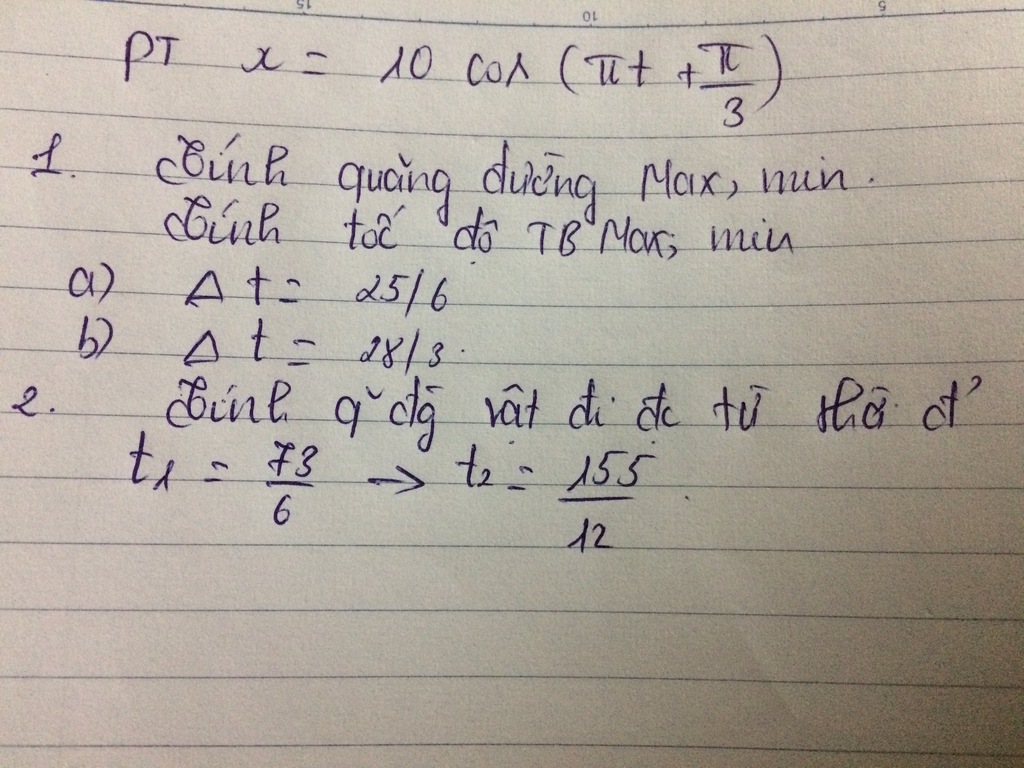 PT x = 10 cos (πt + π/3)
1. Tính quãng đường Max, min.
Tính tốc độ TB Max, min
a) Δt = 25/6
b) Δt = 28/3.
2. Tính qđg vật đi đc từ thời đ'
t1 = 73/6 → t2 = 155/12
15
10
5